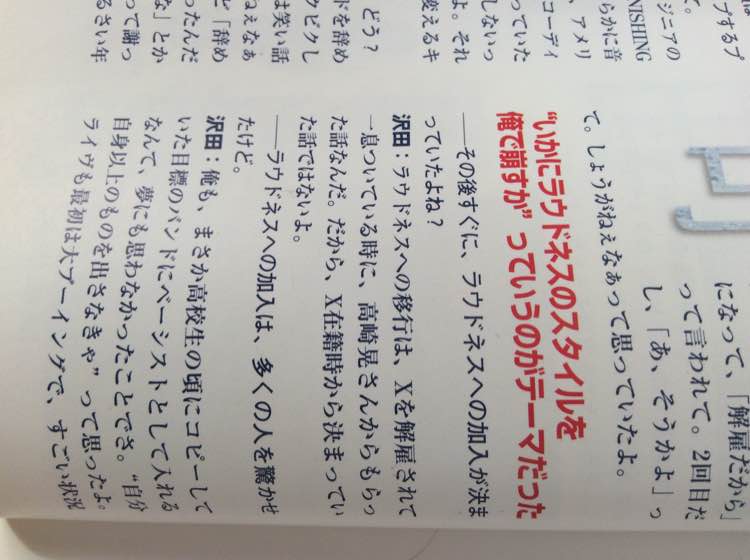 プするプ
ジニアの
NISHING
らかに音
、アメリ
コーディ
っていた
しないっ
よ。それ
変えるキ
どう？
ドを辞め
クビクし
は笑い話
ねぇなぁ
ど「辞め
ったんだ
な」とか
って謝っ
るさい年
になって、「解雇だから」
って言われて。2回目だ
し、「あ、そうかよ」っ
て。しょうがねぇなあって思っていたよ。
“いかにラウドネスのスタイルを
俺で崩すか”っていうのがテーマだった
――その後すぐに、ラウドネスへの加入が決ま
っていたよね？
沢田：ラウドネスへの移行は、Xを解雇されて
一息ついている時に、高崎晃さんからもらっ
た話なんだ。だから、X在籍時から決まってい
た話ではないよ。
――ラウドネスへの加入は、多くの人を驚かせ
たけど。
沢田：俺も、まさか高校生の頃にコピーして
いた目標のバンドにベーシストとして入れる
なんて、夢にも思わなかったことでさ。“自分
自身以上のものを出さなきゃ”って思ったよ。
ライヴも最初は大ブーイングで、すごい状況